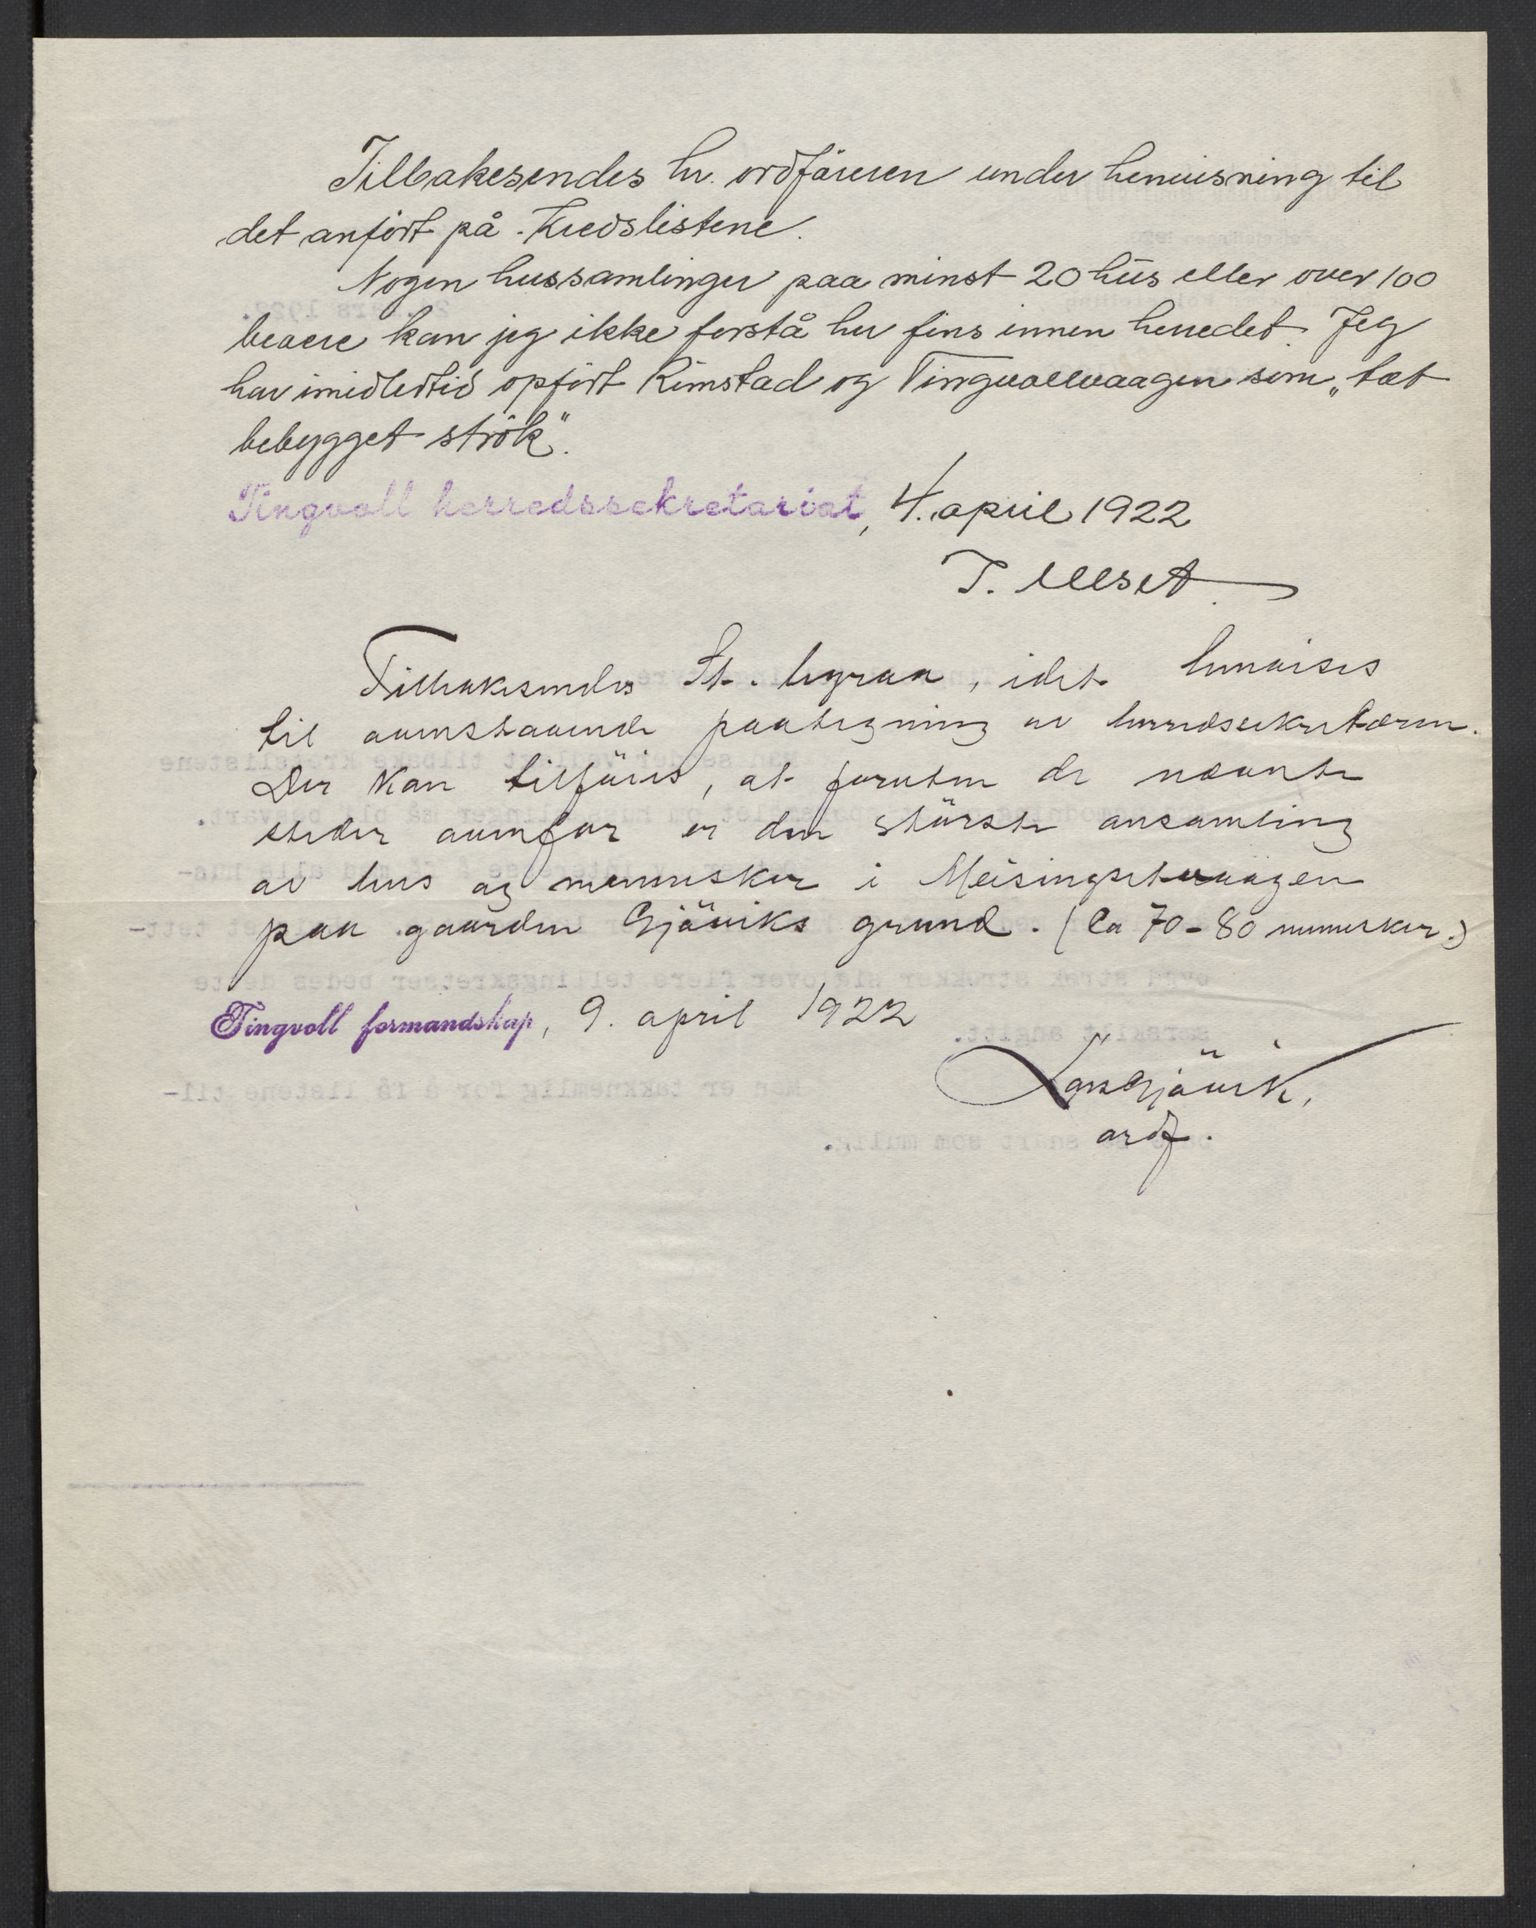 Tilbakesendes hr. ordföreren under henvisning til
det anfört på Kredslistene.
Nogen hussamlinger paa minst 20 hus eller over 100
beboere kan jeg ikke forstå her fins innen herredet. Jeg
har imidlertid opfört Rimstad og Tingvollvaagen som „tæt
bebygget strök".
Tingvoll herredssekretariat, 4. april 1922
T. Ulset
Tilbakesendes St. byraa, idet henvises
til ovenstaaende paategning av herredssekretæren.
Der kan tilföies, at foruten de nævnte
steder ovenfor er den störste ansamling
av hus og mennesker i Meisingsetvaagen
paa gaarden Gjöviks grund. (Ca 70-80 mennesker.)
Tingvoll formandskap, 9. april 1922
Lars Gjövik,
ordf.